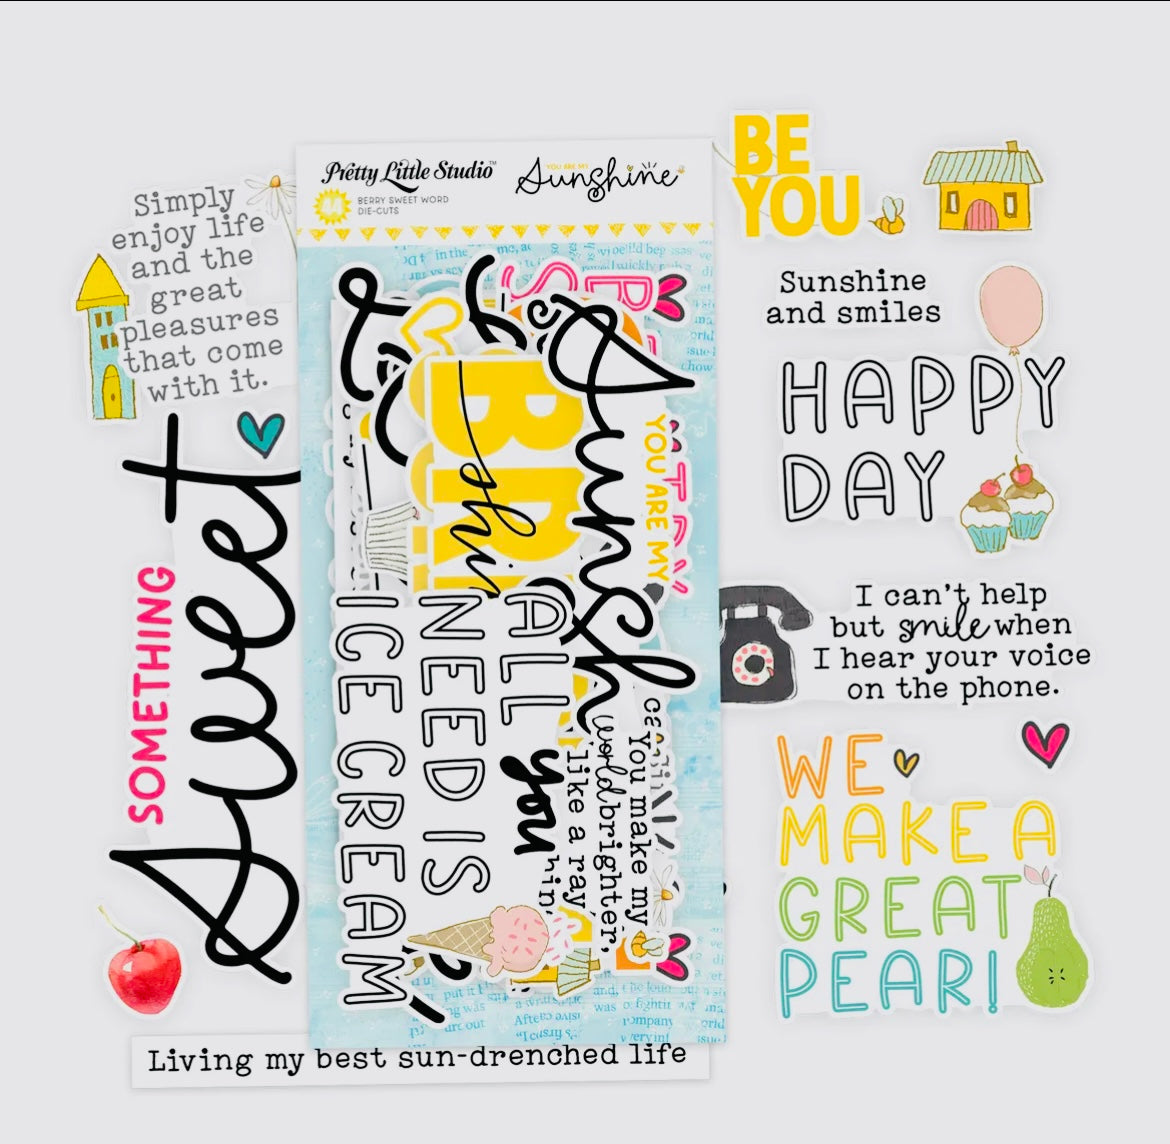 Pretty Little Studio™
YOU ARE MY
Sunshine
44
BERRY SWEET WORD
DIE-CUTS
Simply
enjoy life
and the
great
pleasures
that come
with it.
SOMETHING
Sweet
BE
YOU
Sunshine
and smiles
HAPPY
DAY
I can't help
but smile when
I hear your voice
on the phone.
WE
MAKE A
GREAT
PEAR!
YOU ARE MY
Sunsh
BRI
shi
ALL
NEED IS
ICE CREAM
you
You make my
world brighter,
like a ray
Living my best sun-drenched life